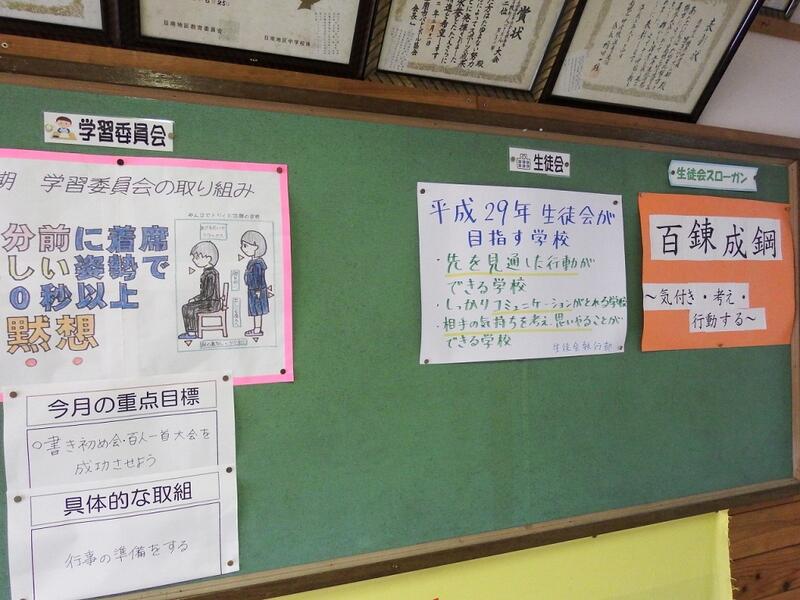 日南地区教育委員会 日南地区中学校体
賞状
学習委員会
期 学習委員会の取り組み
分前に着席
しい姿勢で
0秒以上
黙想
今月の重点目標
○書き初め会・百人一首大会を
成功させよう
具体的な取組
行事の準備をする
生徒会
平成29年 生徒会が
目指す学校
・先を見通した行動が
できる学校
・しっかりコミュニケーションがとれる学校
・相手の気持ちを考え、思いやることが
できる学校
生徒会執行部
生徒会スローガン
百錬成鋼
～気付き・考え・
行動する～